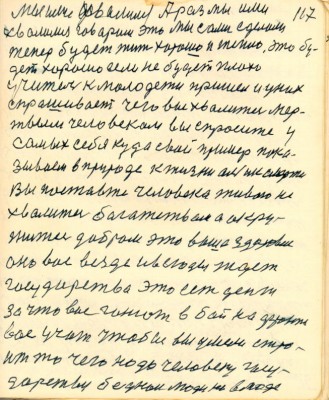 мы ими хвалимся А раз мы ими 117
хвалимся говарим это мы сами сделали
тепер будет тит хорошо и тепло, это бу-
дет хорошо если не будет плохо
Учитель к молодети пришел и у них
спрашивает чего вы хвалитися мер-
твым человеком вы спросите у
самых себя куда свой пример пока-
зываем в природе к жизни али
Вы поставте человека живого не
хвалитеся багатством а окру-
жите добром это ваша здоровие
оно вас везде и всюды ждет
государства это ест денги
за что вас гонют в бой на
вас учат чтобы вы умели стро-
ит то чего надо человеку госу-
дарству бедном можно в воде